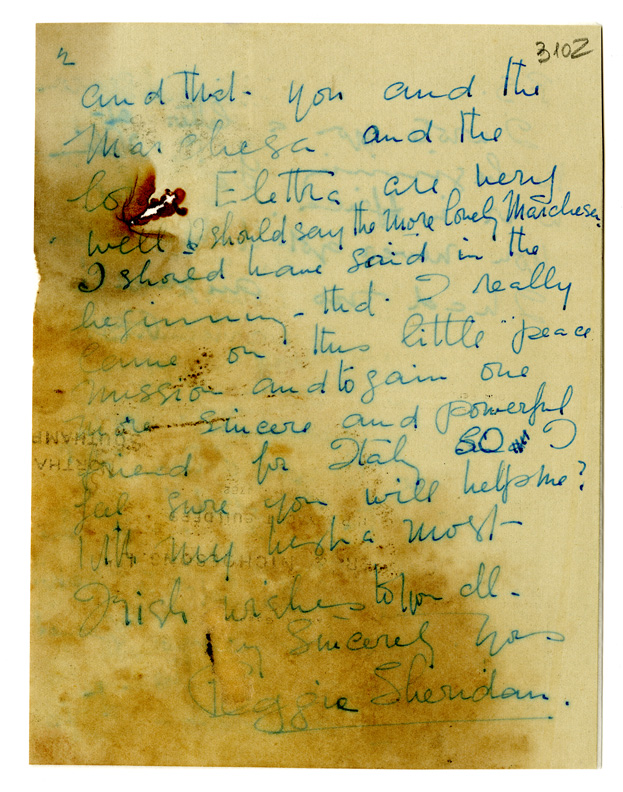 2
3102
and that you and the
Marchesa and the
lo Elettra are very
well. I should say the more lovely Marchesa.
I should have said in the
beginning - that I really
came on this little "peace
mission and to gain one
more sincere and powerful
friend for Italy so I
feel sure you will help me?
With my best & most
Irish wishes to you all -
Sincerely yours
Sheridan.